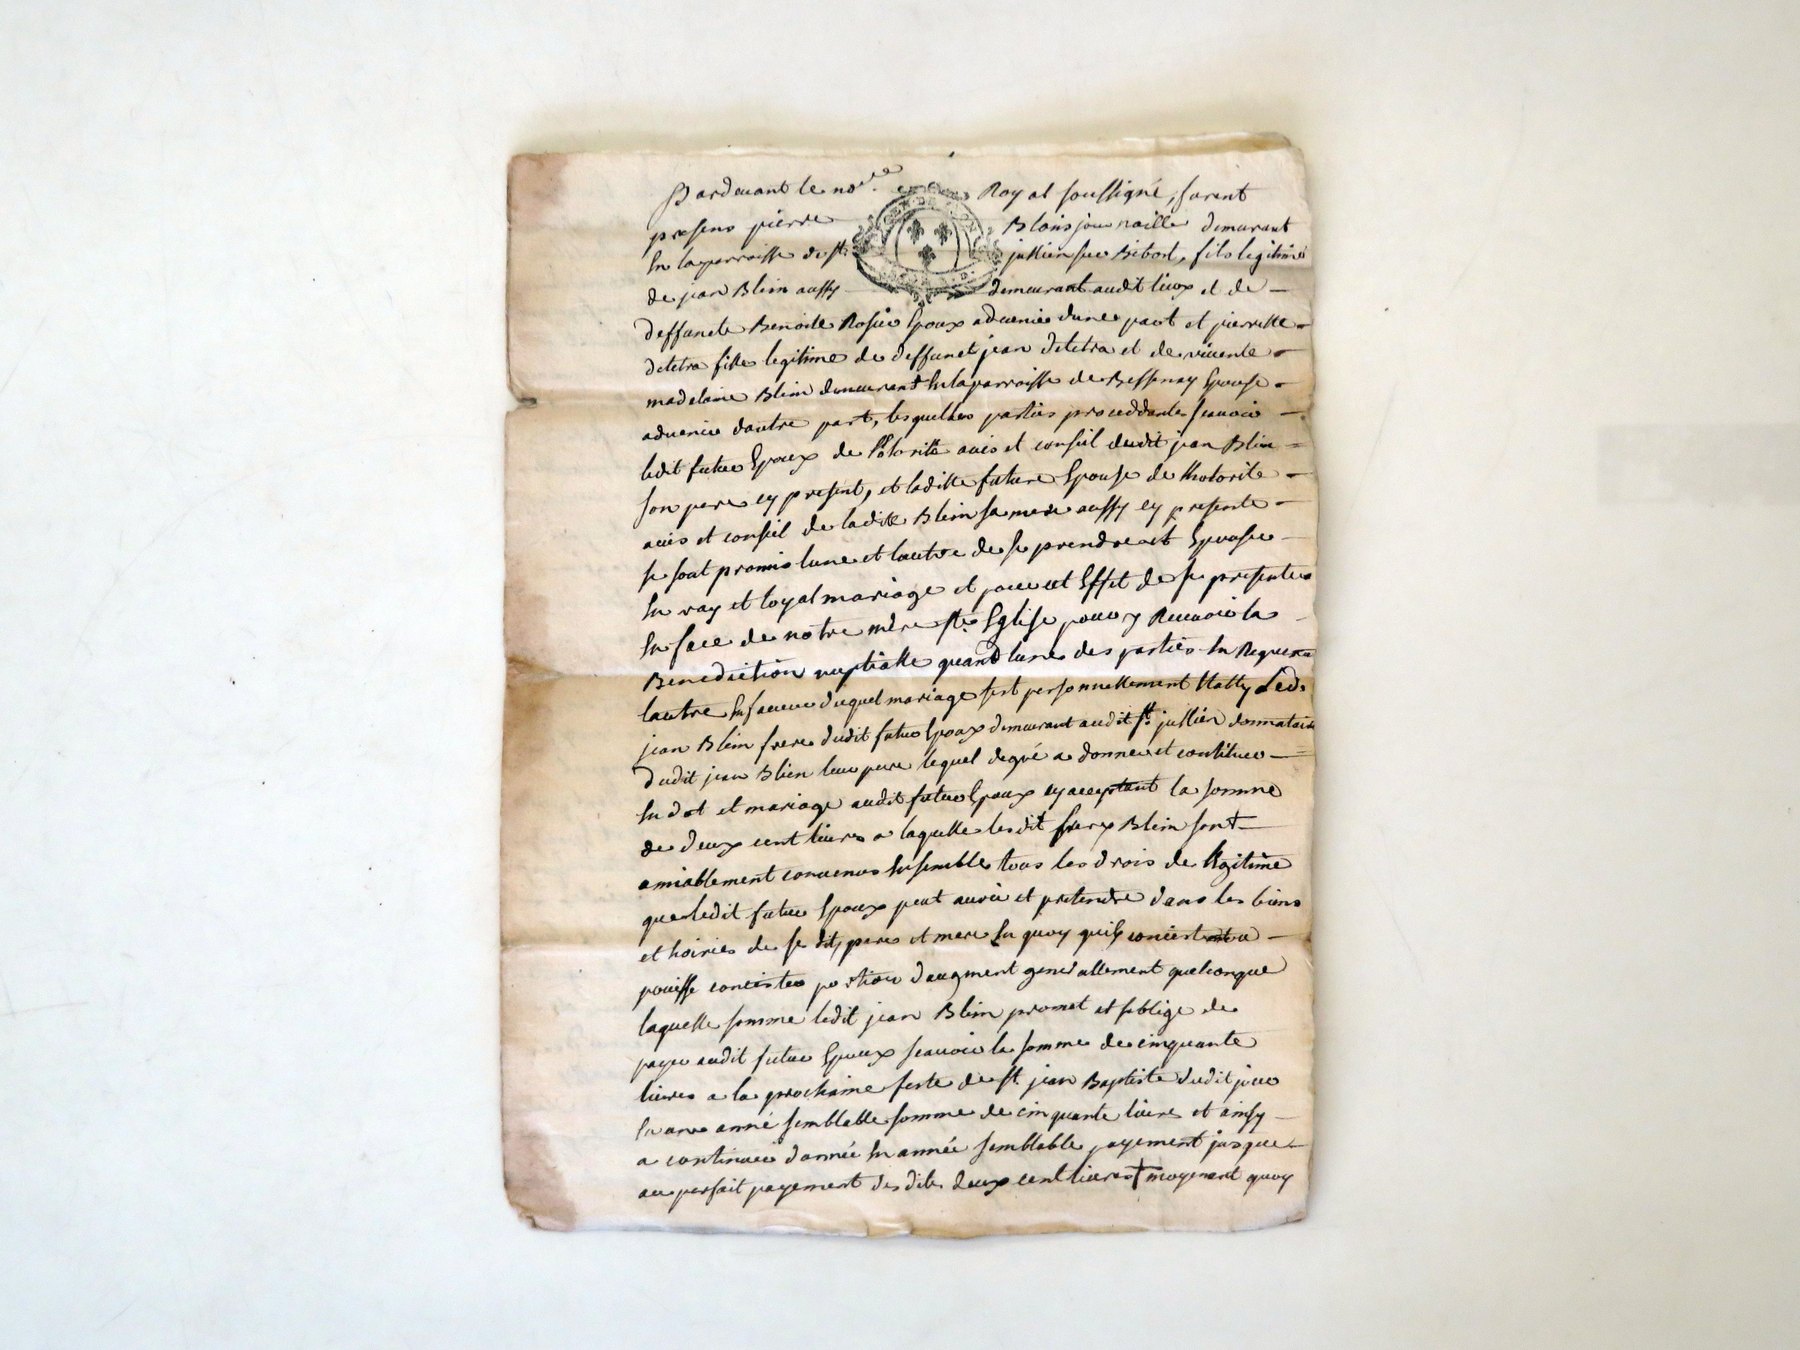 Pardevant le no.re Royal soussigné, furent
presens pierre Blein journaillé demeurant
En la parroisse de st jullien sur Bibost, fils legitime
de jean Blein aussy demeurant audit lieux et de
deffuncte Benoite Rosier Epoux advenir dune part et pierrette
detetra fille legitime de deffunct jean detetra et de vivente
madelaine Blein demeurant En la parroisse de Bessenay Epouse
advenir dautre part, lesquelles parties proceddantes scavoir
ledit futur Epoux de lotorité avis et conseil dudit jean Blein
son pere cy present, et laditte future Epouse de lhotorité
avis et conseil de ladite Blein sa mere aussy cy presente
se sont promis lune et lautre de se prendre et Epouser
En vray et loyal mariage et pour cet Effet de se presenter
En face de notre mere ste Eglise pour y Recevoir la
Benediction nuptialle quand lune des parties En Requerra
lautre En faveur duquel mariage sest personnellement Etably Led.
jean Blein frere dudit futur Epoux demeurant audit st jullien donnataire
dudit jean Blein leur pere lequel degré a donné et constitué
En dot et mariage audit futur Epoux cy acceptant la somme
de deux cent livres a laquelle lesdit frerx Blein sont
amiablement convenus Ensemble tous les drois de legitime
que ledit futur Epoux peut avoir et pretendre dans les biens
et hoiries de se dit, pere et mere En quoy quils concistent
pouisse concister portion daugment generallement quelconque
laquelle somme ledit jean Blein promet et soblige de
payer audit futur Epoux scavoir la somme de cinquante
livres a la prochaine feste de st jean Baptiste dudit jour
En un anné semblable somme de cinquante livres et ainsy
a continuer dannée En année semblable payement jusque
au parfait payement desdits deux cent livres moyenant quoy